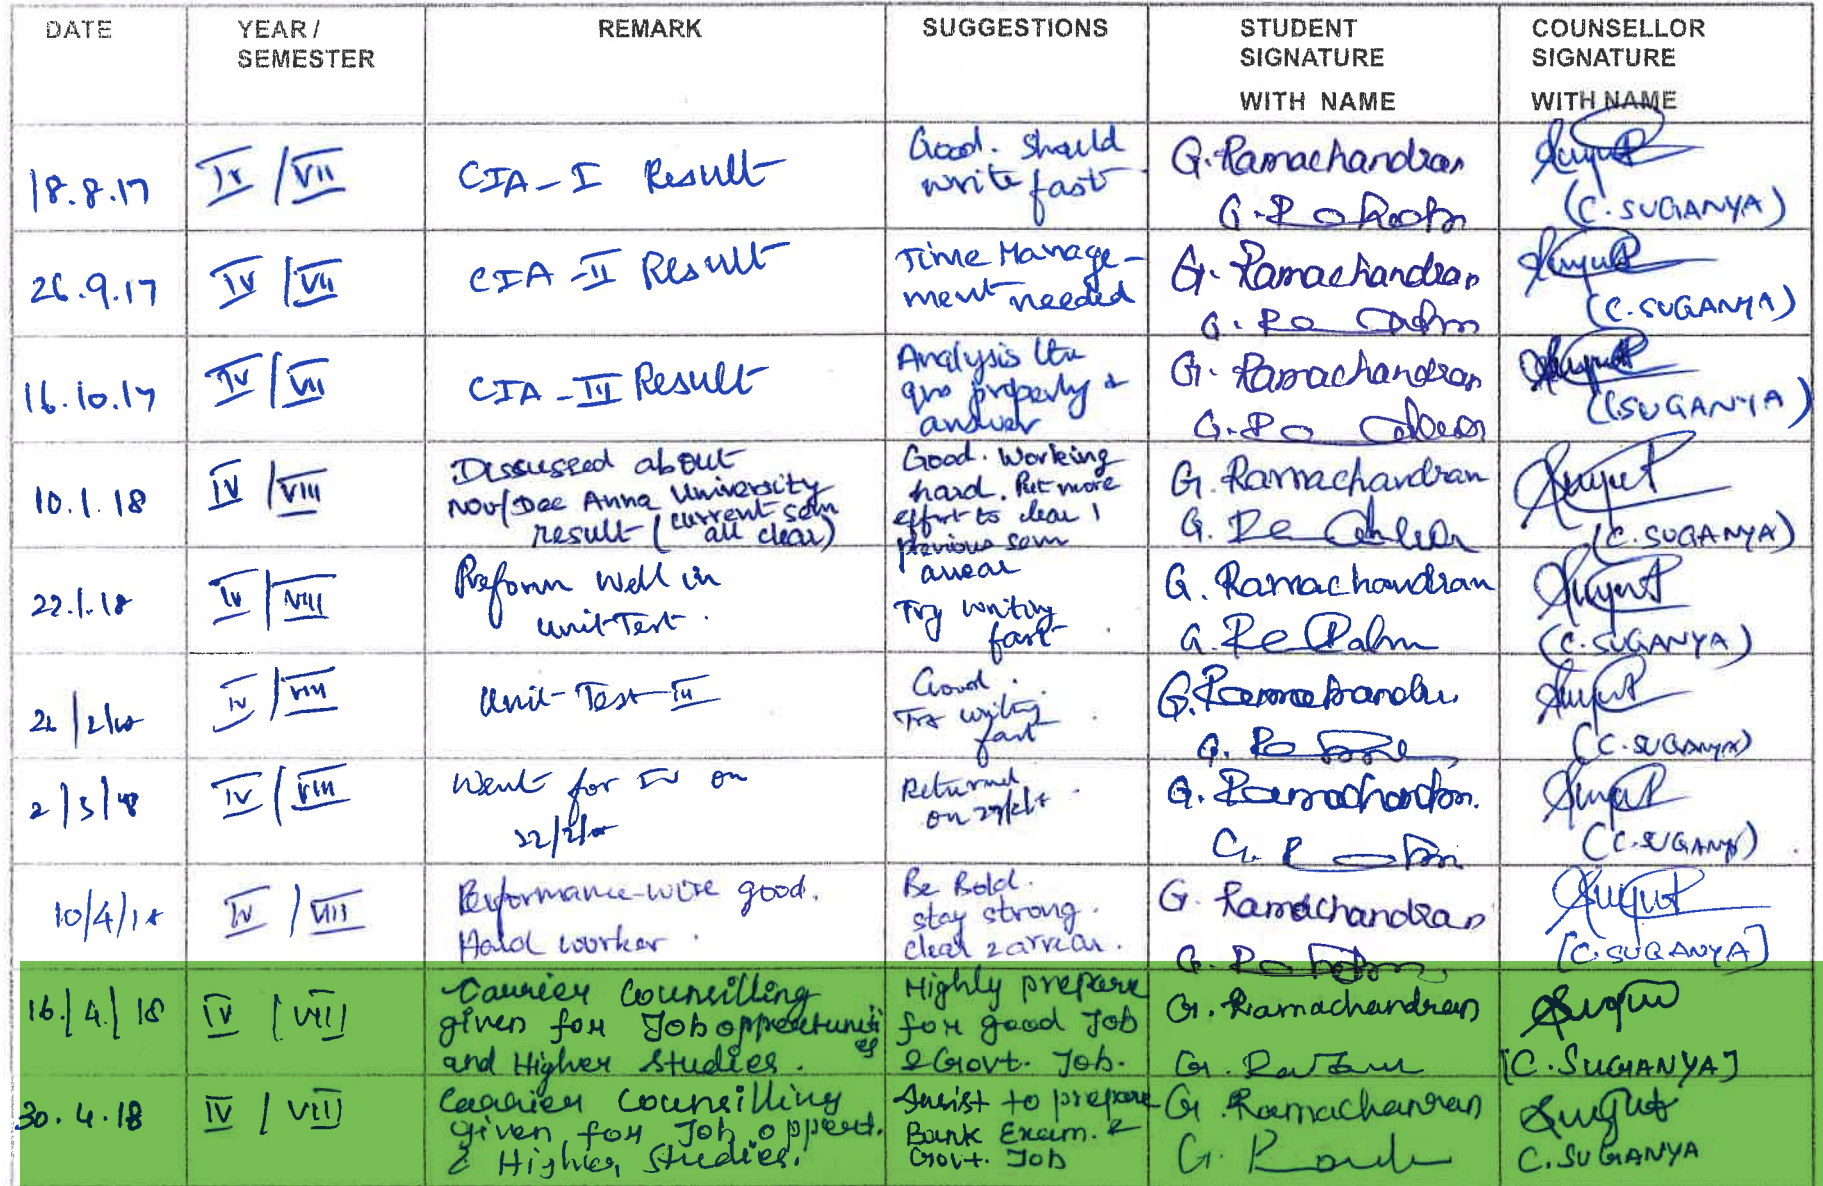 DATE
YEAR /
SEMESTER
REMARK
SUGGESTIONS
STUDENT
SIGNATURE
WITH NAME
COUNSELLOR
SIGNATURE
WITH NAME
18.8.17
IV / VII
CIA - I Result
Good. Should
write fast
G. Ramachandran
(C. SUGANYA)
26.9.17
IV / VII
CIA - II Result
Time Manage-
ment needed
G. Ramachandran
(C. SUGANYA)
16.10.17
IV / VII
CIA - III Result
Analysis the
qns properly &
answer
G. Ramachandran
(C. SUGANYA)
10.1.18
IV / VIII
Discussed about
Nov/Dec Anna University
result (current sem
all clear)
Good. Working
hard. Put more
effort to clear 1
previous sem
arrear
G. Ramachandran
(C. SUGANYA)
22.1.18
IV / VIII
Preform well in
unit Test.
Try writing
fast
G. Ramachandran
(C. SUGANYA)
IV / VIII
Unit - Test - II
Good.
Try writing
fast
(C. SUGANYA)
2/3/18
IV / VIII
Went for IV on
Returned
on
G. Ramachandran.
(C. SUGANYA)
10/4/18
IV / VIII
Performance-wise good.
Hard worker.
Be Bold.
stay strong.
clear 2 arrear.
G. Ramachandran
[C. SUGANYA]
16/4/18
IV / VIII
Carrier Counsilling
given for Job opportuniti
es
and Higher studies.
Highly prepare
for good Job
& Govt. Job.
G. Ramachandran
[C. SUGANYA]
30.4.18
IV / VIII
Carrier Counsilling
given for Job oppert.
& Higher Studies.
Insist to prepare
Bank Exam. &
Govt. Job
G. Ramachanran
C. SUGANYA